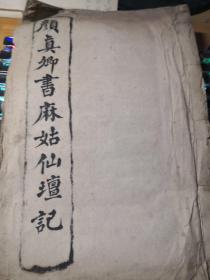 顏真卿書麻姑仙壇記